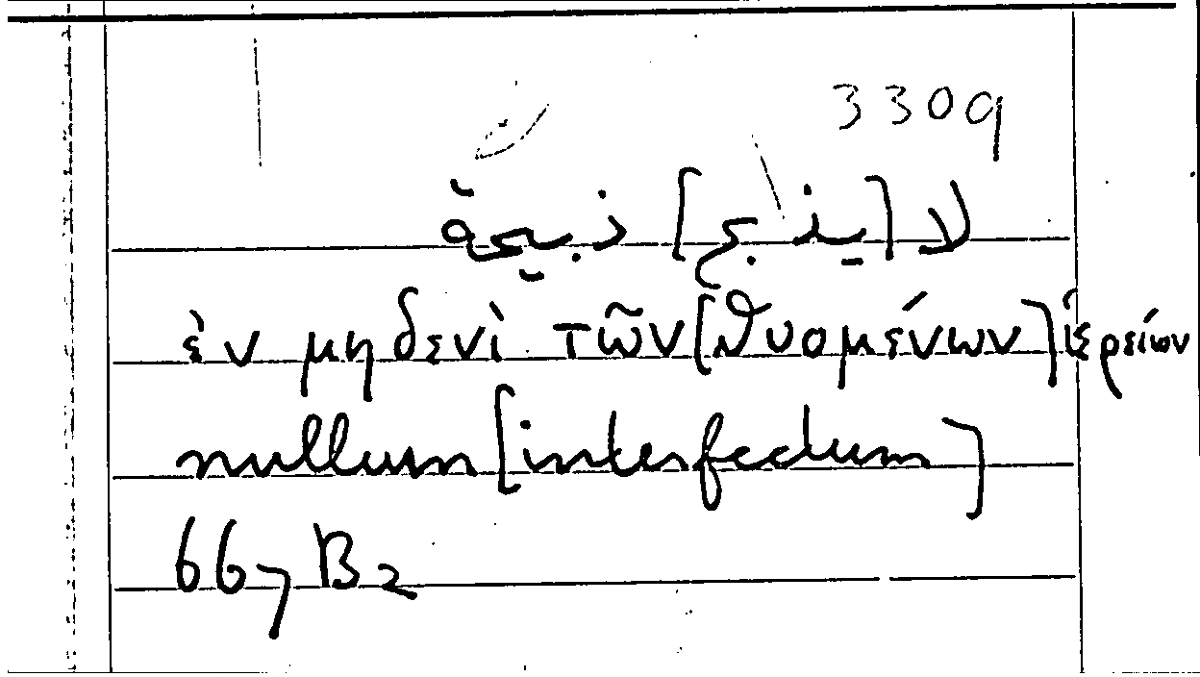 3309
لا [يذبح] ذبيحة
ἐν μηδενὶ τῶν [θυομένων] ἱερείων
nullum [interfectum]
667 B2